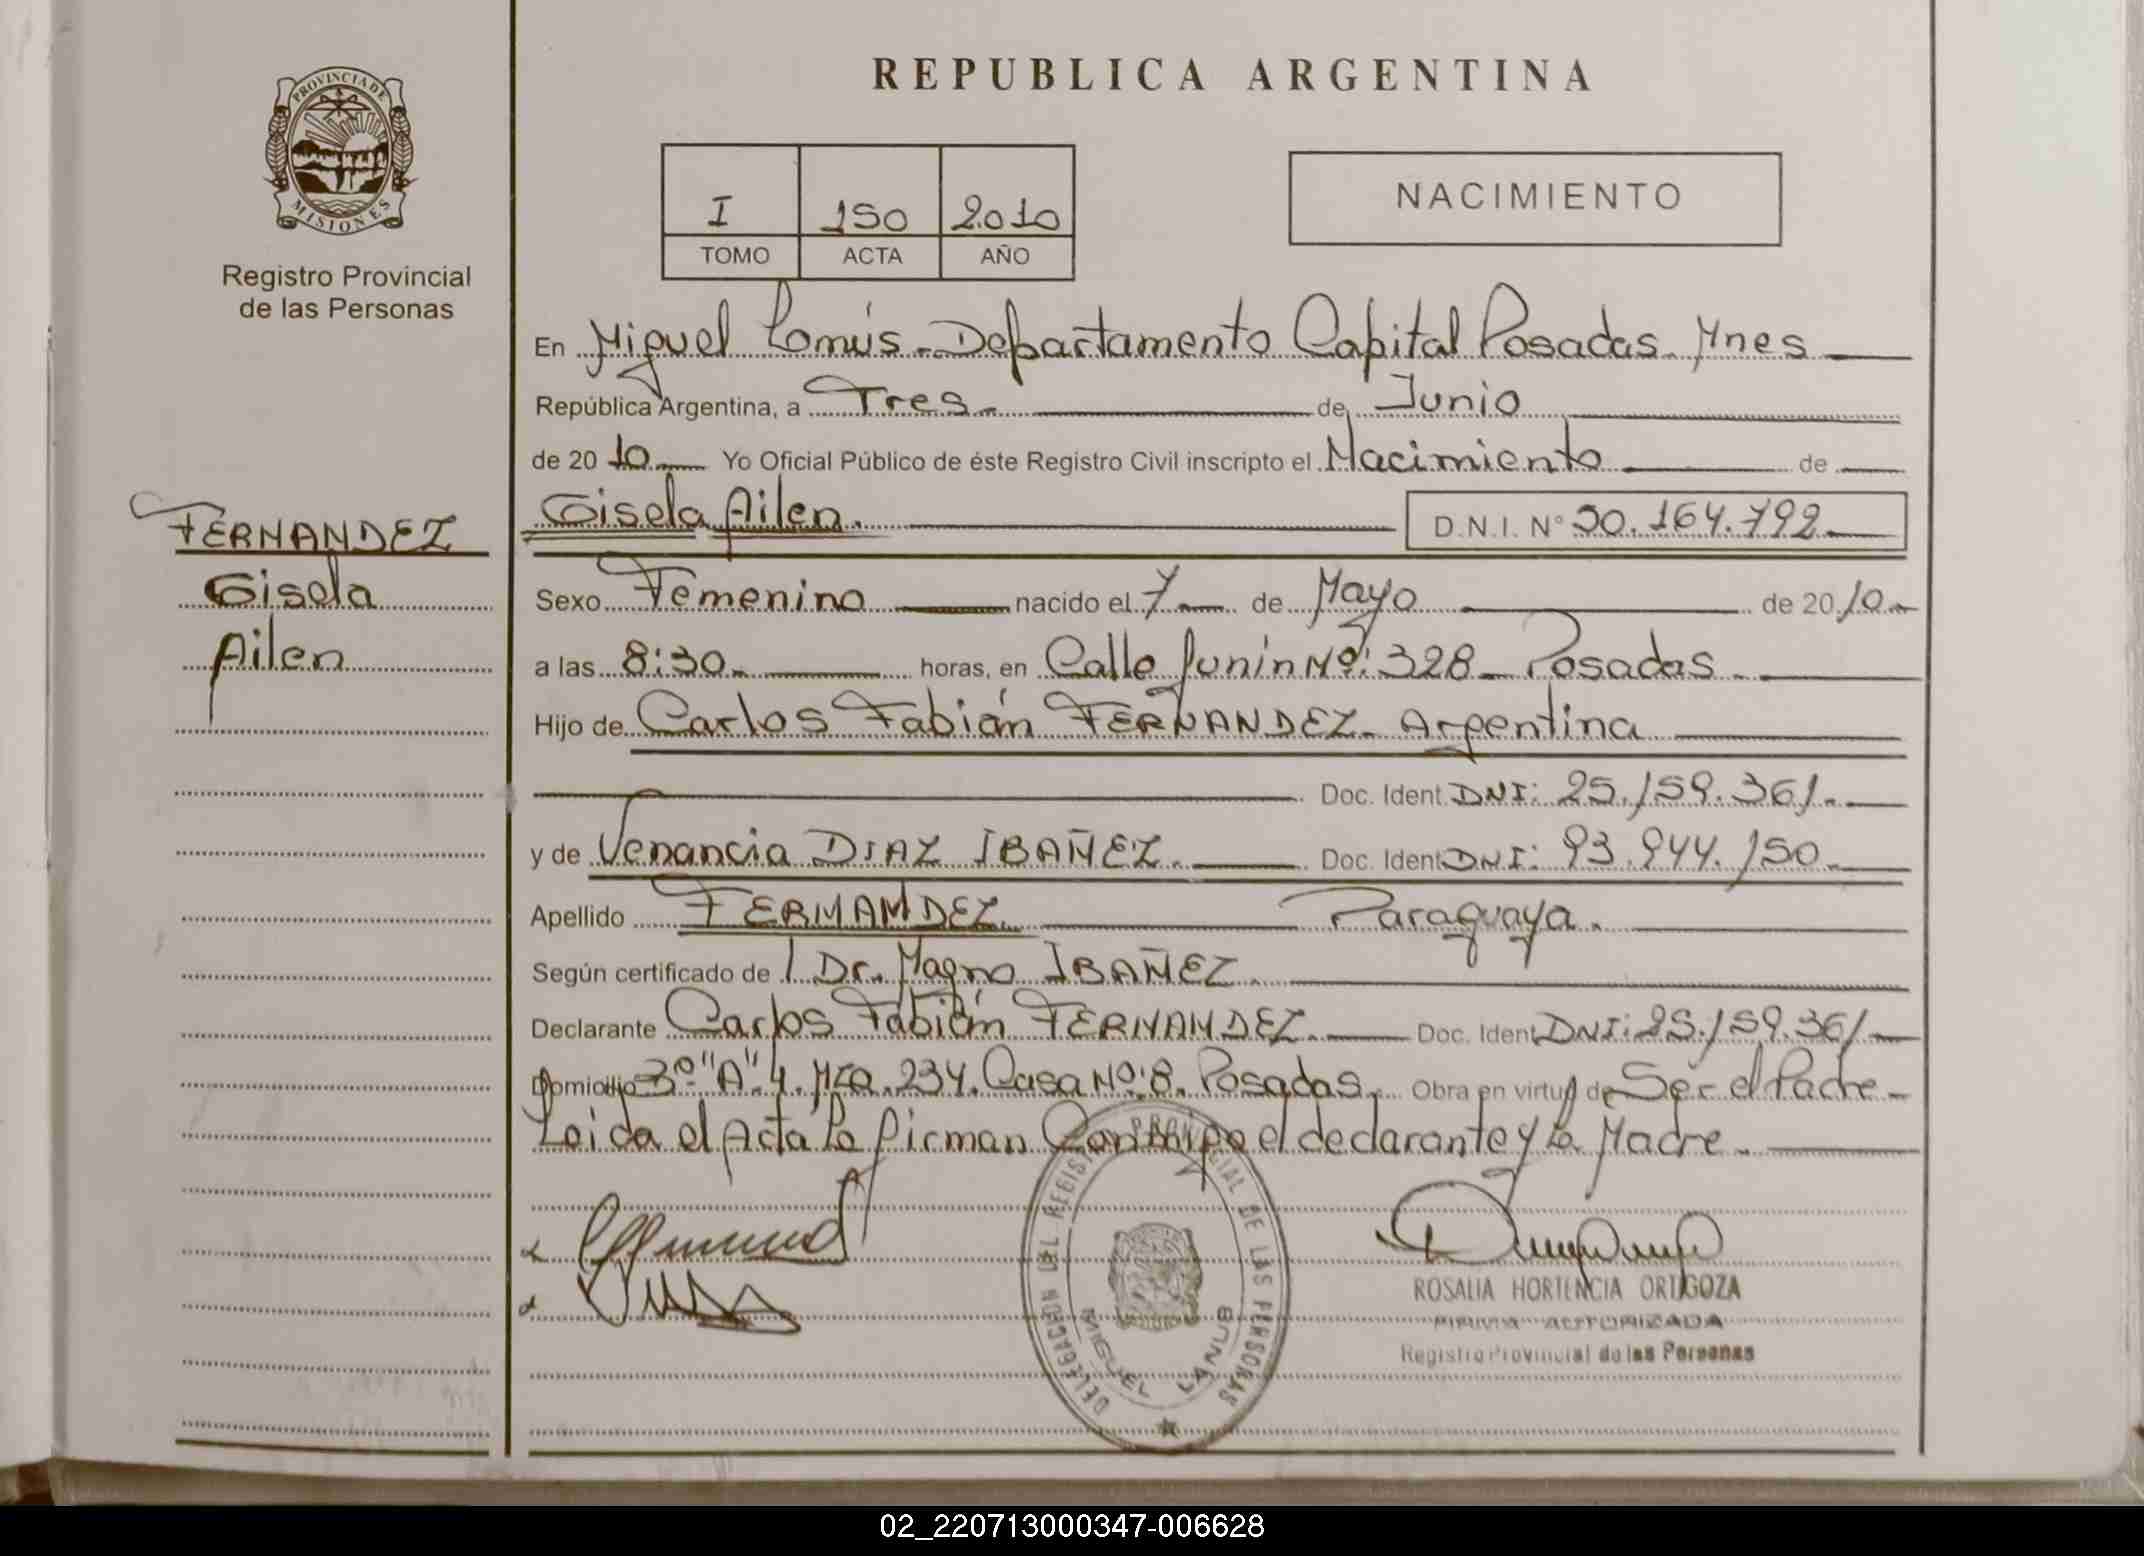 PROVINCIA DE
MISIONES
Registro Provincial
de las Personas
FERNANDEZ
Gisela
Ailen
REPUBLICA ARGENTINA
I 150 2.010
TOMO ACTA AÑO
NACIMIENTO
En Miguel Lanús - Departamento Capital Posadas. Mnes
República Argentina, a Tres. de Junio
de 20 10 Yo Oficial Público de éste Registro Civil inscripto el Nacimiento de
Gisela Ailen. D.N.I. N° 50.164.792
Sexo Femenino nacido el 7 de Mayo de 20 10
a las 8:30 horas, en Calle Junín Nº: 328 - Posadas.
Hijo de Carlos Fabián FERNANDEZ. Argentina
Doc. Ident. DNI: 25.159.361.
y de Venancia DIAZ IBAÑEZ. Doc. Ident. DNI: 93.944.150
Apellido FERNANDEZ. Paraguaya.
Según certificado de Dr. Magno IBAÑEZ.
Declarante Carlos Fabián FERNANDEZ. Doc. Ident. DNI: 25.159.361
Domicilio 3º "A" 4. Mza. 234. Casa Nº: 8. Posadas. Obra en virtud de Ser el Padre
Leida el Acta la firman Conmigo el declarante y la Madre.
DELEGACION DEL REGISTRO PROVINCIAL DE LAS PERSONAS
MIGUEL LANUS
ROSALIA HORTENCIA ORTIGOZA
FIRMA AUTORIZADA
Registro Provincial de las Personas
02_220713000347-006628